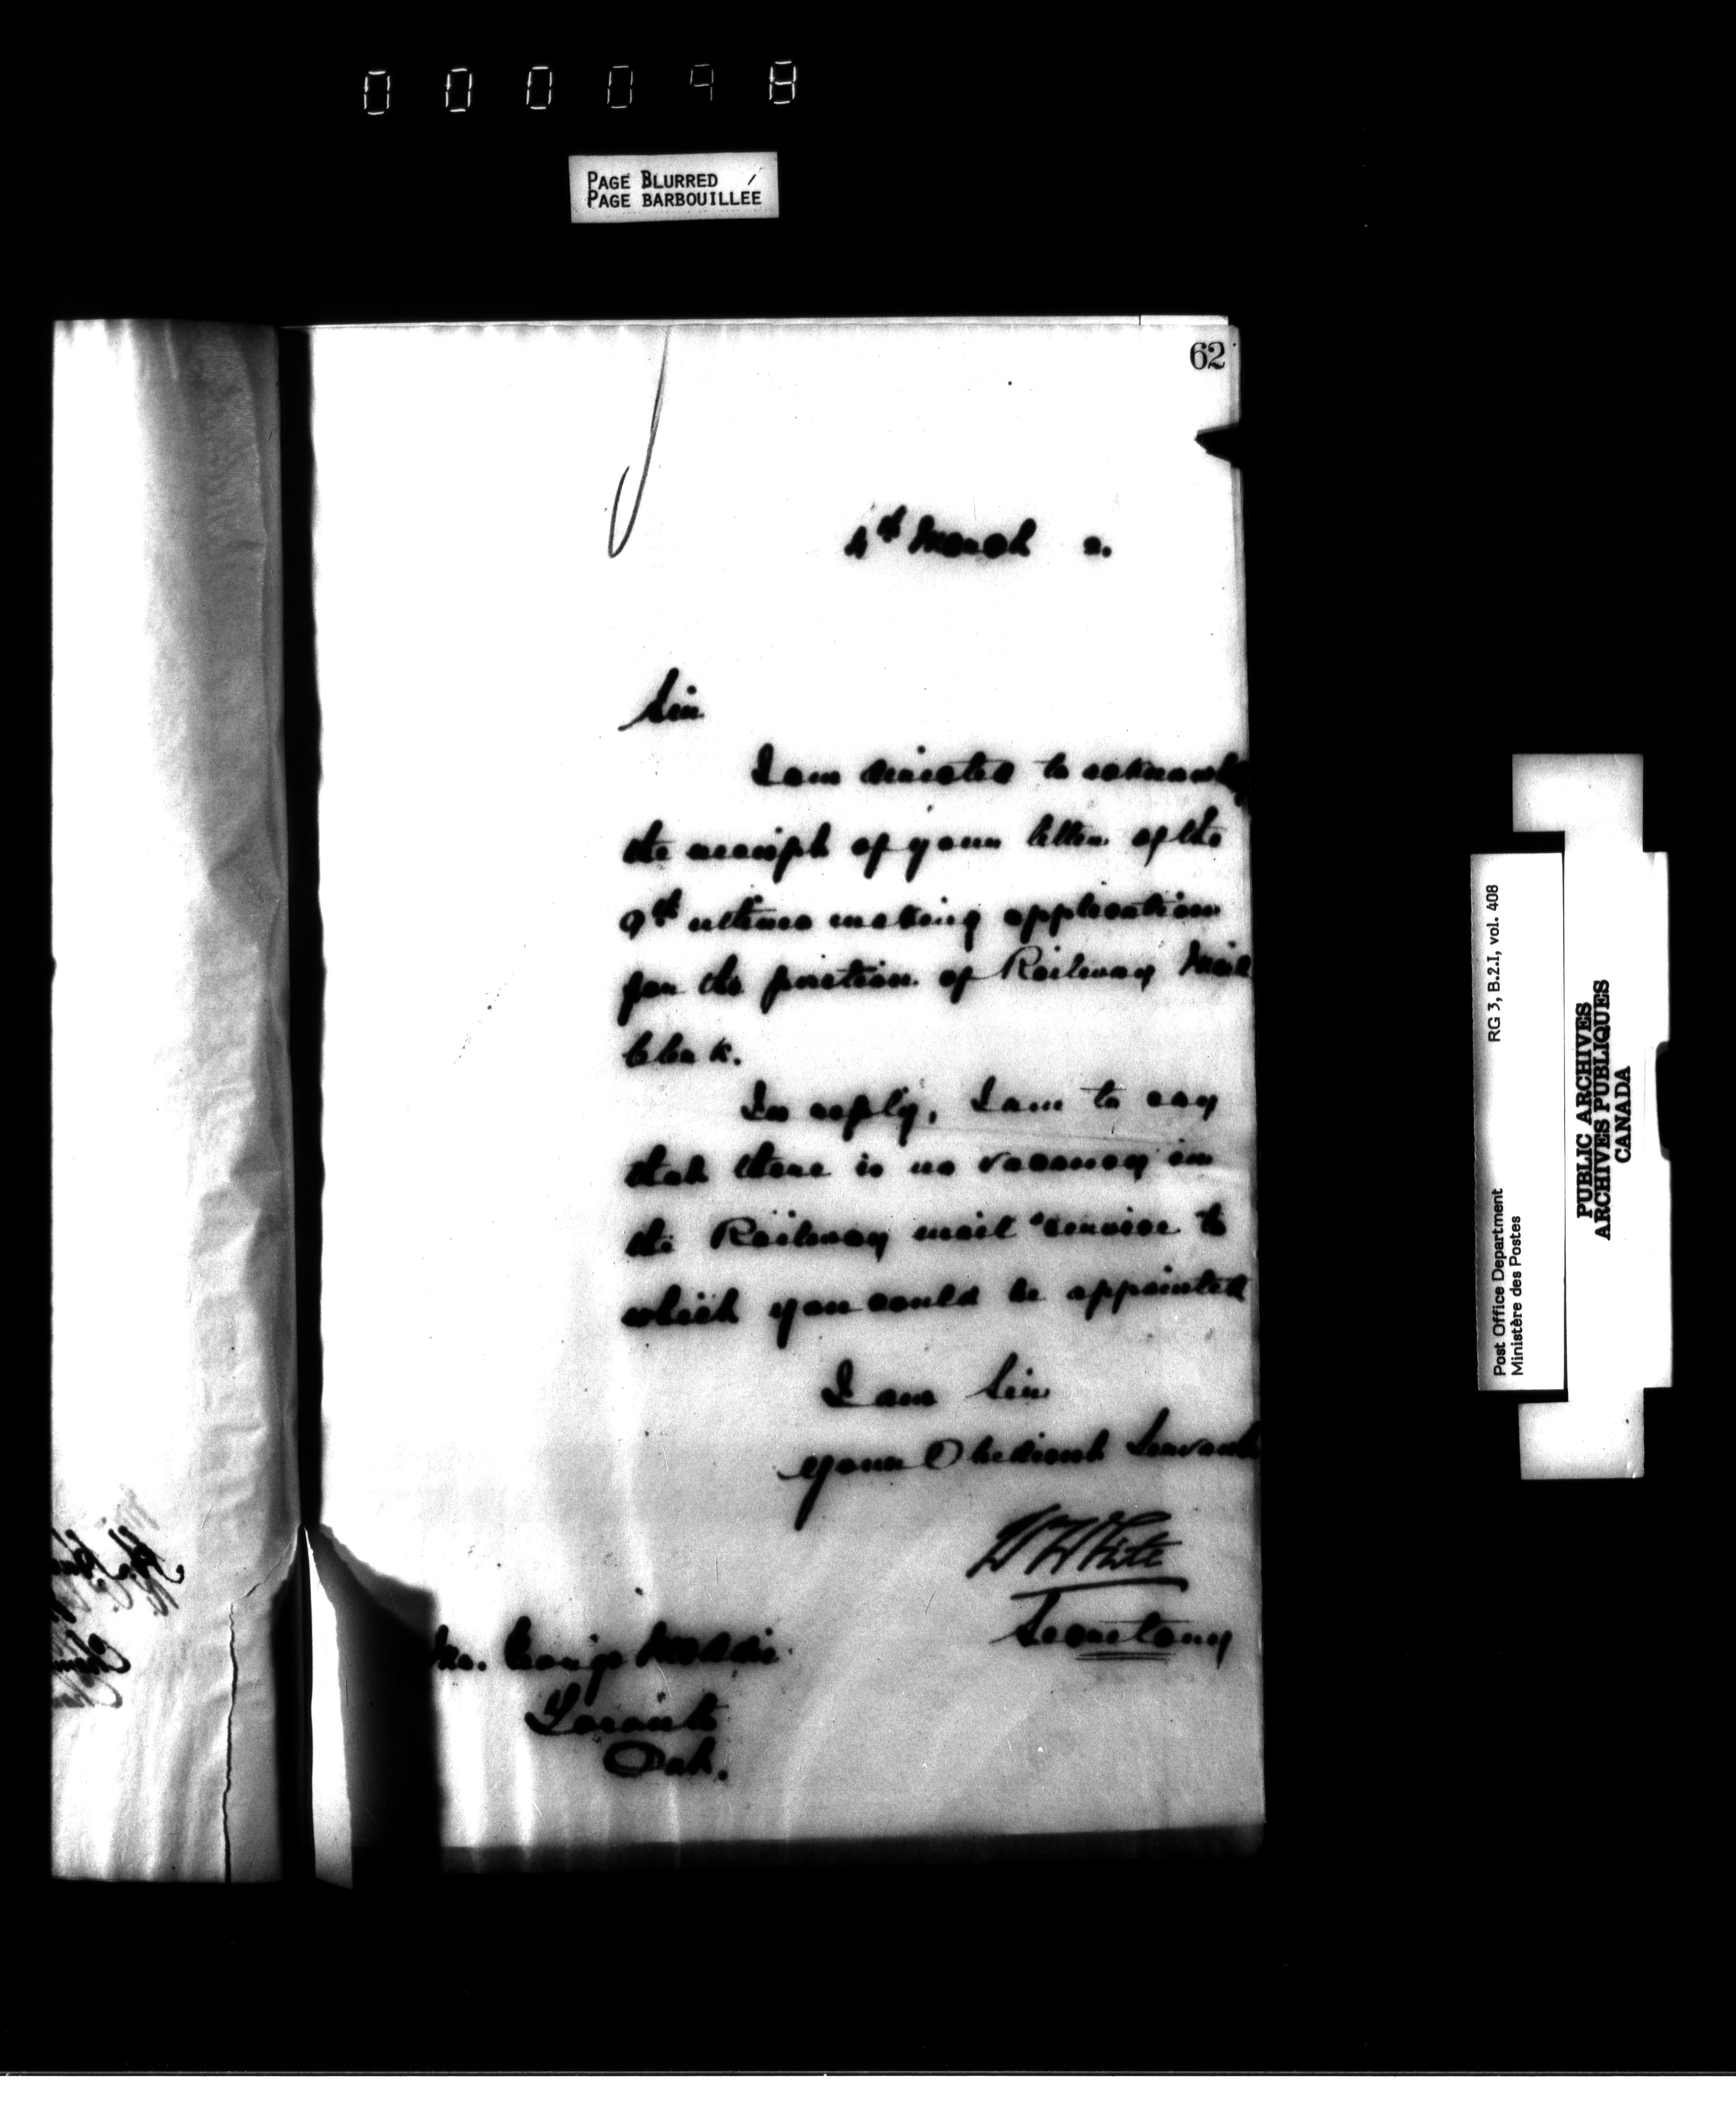 000098
PAGE BLURRED
PAGE BARBOUILLÉE
62
4th March 2.
Sir
I am directed to acknowledg
the receipt of your letter of the
9th ultimo making application
for the position of Railway Mail
Clerk.
In reply, I am to say
that there is no vacancy in
the Railway mail service to
which you could be appointed
I am Sir
Your Obedient Servant
W White
Secretary
Mr. George
Toronto
Ont.
Post Office Department RG 3, B.2.I, vol. 408
Ministère des Postes
PUBLIC ARCHIVES
ARCHIVES PUBLIQUES
CANADA